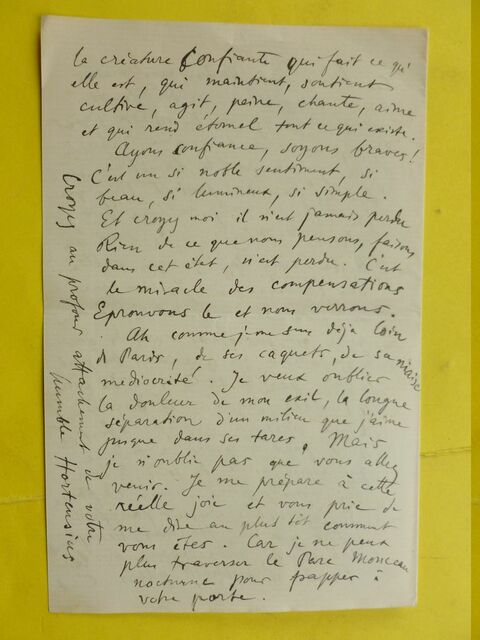 la créature confiante qui fait ce qu'
elle est, qui maintient, soutient
cultive, agit, peine, chante, aime
et qui rend éternel tout ce qui existe.
Ayons confiance, soyons braves!
C'est un si noble sentiment, si
beau, si lumineux, si simple.
Et croyez moi il n'est jamais perdu
Rien de ce que nous pensons, faisons
dans cet état, n'est perdu. C'est
le miracle des compensations
Eprouvons le et nous verrons.
Ah comme je me sens déjà loin
de Paris, de ses caquets, de sa niaise
médiocrité! Je veux oublier
la douleur de mon exil, la longue
séparation d'un milieu que j'aime
jusque dans ses tares. Mais
je n'oublie pas que vous allez
venir. Je me prépare à cette
réelle joie et vous prie de
me dire au plus tôt comment
vous êtes. Car je ne peux
plus traverser le Parc Monceau
nocturne pour frapper à
votre porte.
Croyez au profond attachement de votre
humble Hortensius